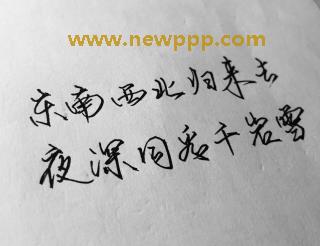 www.newppp.com
东南西北归来去
夜深同看千岩雪